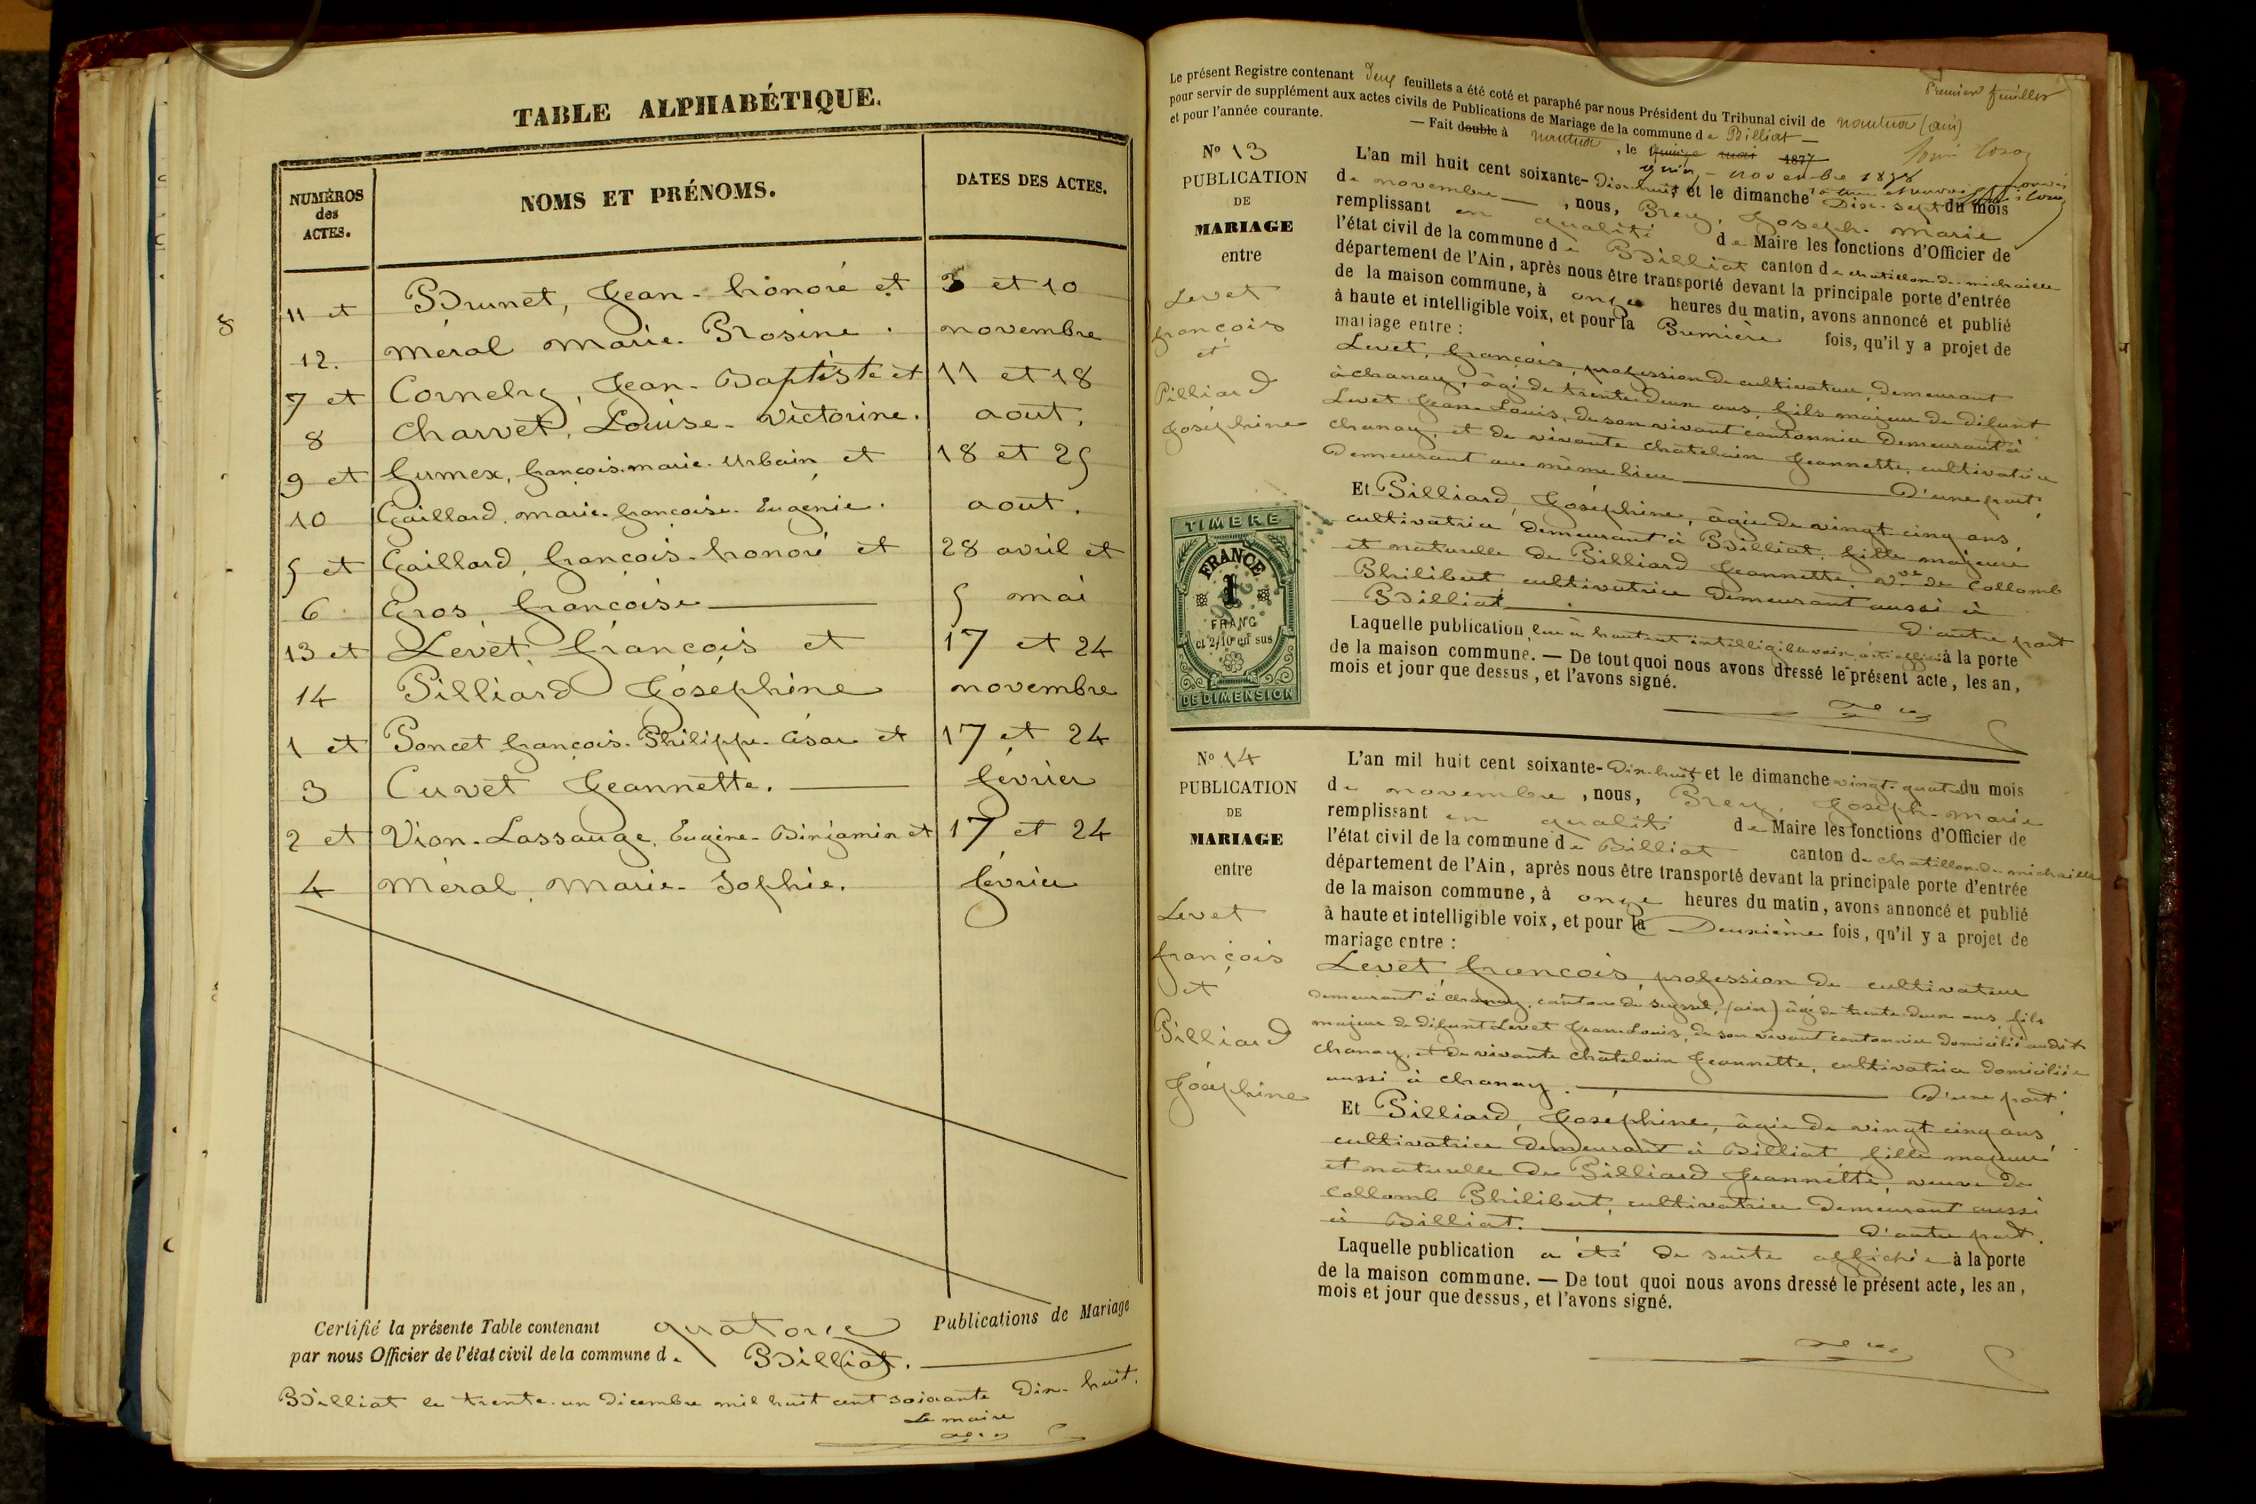 TABLE ALPHABÉTIQUE.
NUMÉROS
des
ACTES.
NOMS ET PRÉNOMS.
DATES DES ACTES.
8
11 et Brunet, Jean-honoré et 3 et 10
12. Méral Marie-Rosine. novembre
7 et Cornelry, Jean-Baptiste et 11 et 18
8 Charvet, Louise-Victorine. aout,
9 et Gumex, françois-marie-Urbain et 18 et 25
10 Gaillard, marie-françoise-Eugénie. aout,
5 et Gaillard, françois-honoré et 28 avril et
6 Gros, françoise 5 mai
13 et Levet, françois et 17 et 24
14 Pilliard Joséphine novembre
1 et Poncet françois-Philippe-César et 17 et 24
3 Cuvet Jeannette. février
2 et Vion-Lassauge, Eugène-Binjamin et 17 et 24
4 Méral, Marie-Sophie. février
Certifié la présente Table contenant quatorze Publications de Mariage
par nous Officier de l'état civil de la commune de Billiat.
Billiat le trente-un décembre mil huit cent soixante Dix-huit.
Le maire
Premier feuillet
Le présent Registre contenant Deux feuillets a été coté et paraphé par nous Président du Tribunal civil de nantua (ain)
pour servir de supplément aux actes civils de Publications de Mariage de la commune de Billiat
et pour l'année courante. — Fait double à nantua, le quinze mai 1877
novembre 1878
N° 13
PUBLICATION
DE
MARIAGE
entre
Levet
françois
et
Pilliard
Joséphine
L'an mil huit cent soixante-Dix-huit et le dimanche Dix-sept du mois
de novembre, nous, Brey, Joseph-Marie
remplissant en qualité de Maire les fonctions d'Officier de
l'état civil de la commune de Billiat canton de chatillon-de-michaille
département de l'Ain, après nous être transporté devant la principale porte d'entrée
de la maison commune, à onze heures du matin, avons annoncé et publié
à haute et intelligible voix, et pour la Première fois, qu'il y a projet de
mariage entre :
Levet, françois, profession de cultivateur, demeurant
à chanay, âgé de trente deux ans, fils majeur de défunt
Levet Jean-Louis, de son vivant cantonnier demeurant à
chanay, et de vivante chatelain Jeannette, cultivatrice
demeurant au même lieu D'une part,
Et Pilliard, Joséphine, âgée de vingt cinq ans,
cultivatrice demeurant à Billiat, fille majeure
et naturelle de Pilliard Jeannette, vve de Collomb
Philibert cultivatrice demeurant aussi à
Billiat D'autre part
TIMBRE
FRANCE
1
FRANC
et 2/10 en sus
DE DIMENSION
Laquelle publication, lue à haute et intelligible voix, a été affichée à la porte
de la maison commune. — De tout quoi nous avons dressé le présent acte, les an,
mois et jour que dessus, et l'avons signé.
N° 14
PUBLICATION
DE
MARIAGE
entre
Levet
françois
et
Pilliard
Joséphine
L'an mil huit cent soixante-Dix-huit et le dimanche vingt-quatre du mois
de novembre, nous, Brey, Joseph-Marie
remplissant en qualité de Maire les fonctions d'Officier de
l'état civil de la commune de Billiat canton de chatillon-de-michaille
département de l'Ain, après nous être transporté devant la principale porte d'entrée
de la maison commune, à onze heures du matin, avons annoncé et publié
à haute et intelligible voix, et pour la Deuxième fois, qu'il y a projet de
mariage entre :
Levet françois, profession de cultivateur
demeurant à chanay, canton de seyssel, (ain) âgé de trente deux ans, fils
majeur de défunt Levet Jean-Louis, de son vivant cantonnier domicilié audit
chanay, et de vivante chatelain Jeannette, cultivatrice domiciliée
aussi à chanay. D'une part,
Et Pilliard, Joséphine, âgée de vingt cinq ans,
cultivatrice demeurant à Billiat fille majeure
et naturelle de Pilliard Jeannette, veuve de
Collomb Philibert, cultivatrice demeurant aussi
à Billiat. D'autre part.
Laquelle publication a été de suite affichée à la porte
de la maison commune. — De tout quoi nous avons dressé le présent acte, les an,
mois et jour que dessus, et l'avons signé.